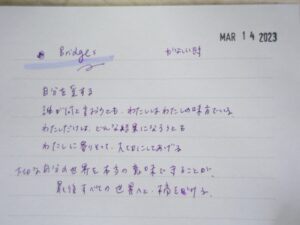 MAR 14 2023
Bridges かなしい時
自分を愛する
誰が何と言おうとも、わたしはわたしの味方でいる。
わたしだけは、どんな結果になろうとも
わたしに寄りそって、大切にしてあげる
自分の世界を本当の意味で することが、
最後すべての世界へと、橋をかける。